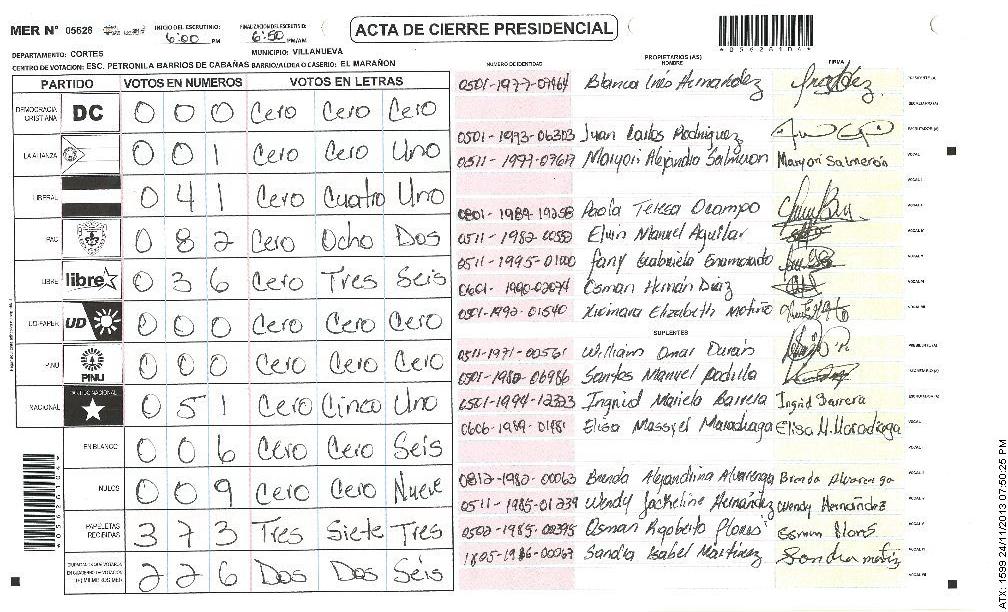 MER N° 05628 INICIO DEL ESCRUTINIO: 6:00 PM FINALIZACION ESCRUTINIO: 6:50 PM/AM ACTA DE CIERRE PRESIDENCIAL
DEPARTAMENTO: CORTES MUNICIPIO: VILLANUEVA
CENTRO DE VOTACION: ESC. PETRONILA BARRIOS DE CABAÑAS BARRIO/ALDEA O CASERIO: EL MARAÑON
PARTIDO VOTOS EN NUMEROS VOTOS EN LETRAS
DEMOCRACIA CRISTIANA DC 0 0 0 Cero Cero Cero
LA ALIANZA 0 0 1 Cero Cero Uno
LIBERAL 0 4 1 Cero Cuatro Uno
PAC 0 8 2 Cero Ocho Dos
LIBRE libre 0 3 6 Cero Tres Seis
UD-FAPER UD 0 0 0 Cero Cero Cero
PINU PINU 0 0 0 Cero Cero Cero
NACIONAL PARTIDO NACIONAL 0 5 1 Cero Cinco Uno
EN BLANCO 0 0 6 Cero Cero Seis
NULOS 0 0 9 Cero Cero Nueve
PAPELETAS RECIBIDAS 3 7 3 Tres Siete Tres
2 2 6 Dos Dos Seis
NUMERO DE IDENTIDAD PROPIETARIOS (AS) NOMBRE FIRMA
0501-1977-07464 Blanca Inés Hernández
0501-1993-06303 Juan Carlos Rodriguez
0511-1977-07617 Maryori Alejandra Salmeron Maryori Salmerón
0801-1989-19258 Paola Teresa Ocampo
0511-1982-00552 Elvin Manuel Aguilar
0511-1995-01100 Fany Gabriela Enamorado
0601-1990-02074 Osman Hernán Diaz
0501-1992-01540 Xiomara Elizabeth Motiño
SUPLENTES
0511-1971-00561 William Omar Durán
0501-1982-06986 Santos Manuel Padilla
0501-1994-12323 Ingrid Mariela Barrera Ingrid Barrera
0606-1989-01481 Elisa Massyel Maradiaga Elisa M. Maradiaga
0812-1982-00063 Brenda Alejandrina Alvarenga Brenda Alvarenga
0511-1985-01239 Wendy Jackeline Hernández Wendy Hernández
0502-1985-00395 Osman Rigoberto Flores Osman Flores
1805-1986-00067 Sandra Isabel Martinez Sandra
ATX: 1599 24/11/2013 07:50:25 PM